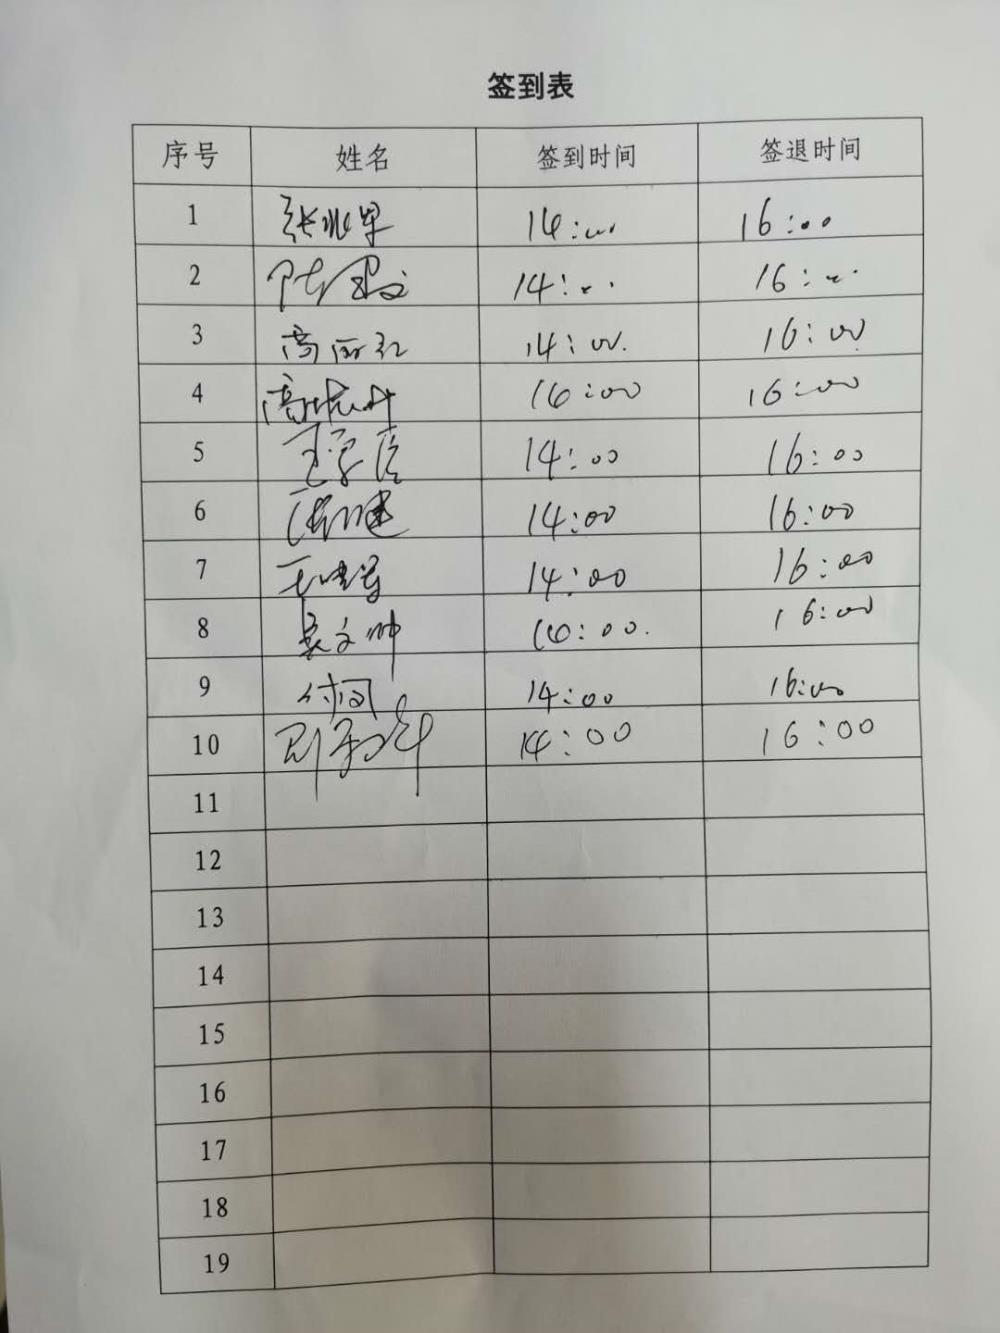 签到表
序号 姓名 签到时间 签退时间
1 张兆早 14:00 16:00
2 14:00 16:00
3 高丽红 14:00 16:00
4 14:00 16:00
5 14:00 16:00
6 14:00 16:00
7 王晓军 14:00 16:00
8 吴文帅 14:00 16:00
9 付闯 14:00 16:00
10 14:00 16:00
11
12
13
14
15
16
17
18
19